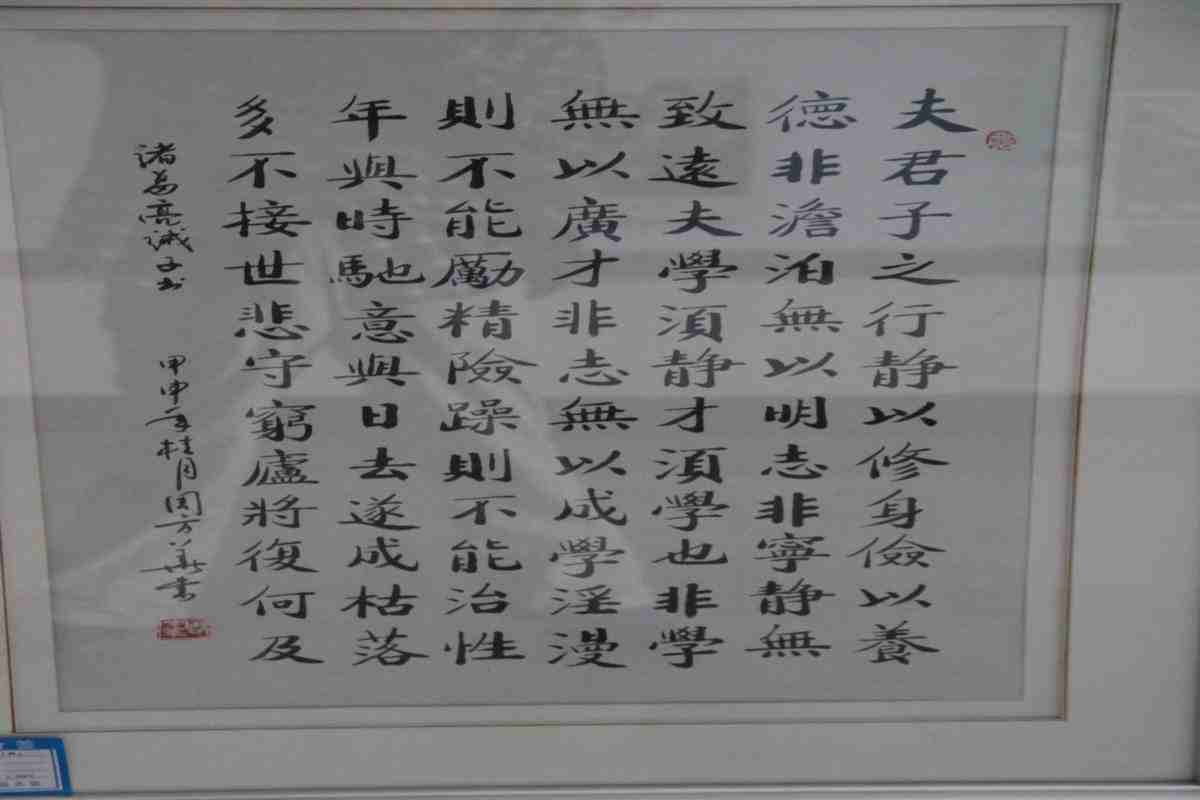 夫君子之行静以修身儉以養
德非澹泊無以明志非寧静無
致遠夫學湏静才湏學也非學
無以廣才非志無以成學淫漫
則不能勵精險躁則不能治性
年與時馳意與日去遂成枯落
多不接世悲守窮廬將復何及
諸葛亮誡子書 甲申年桂月周方華書